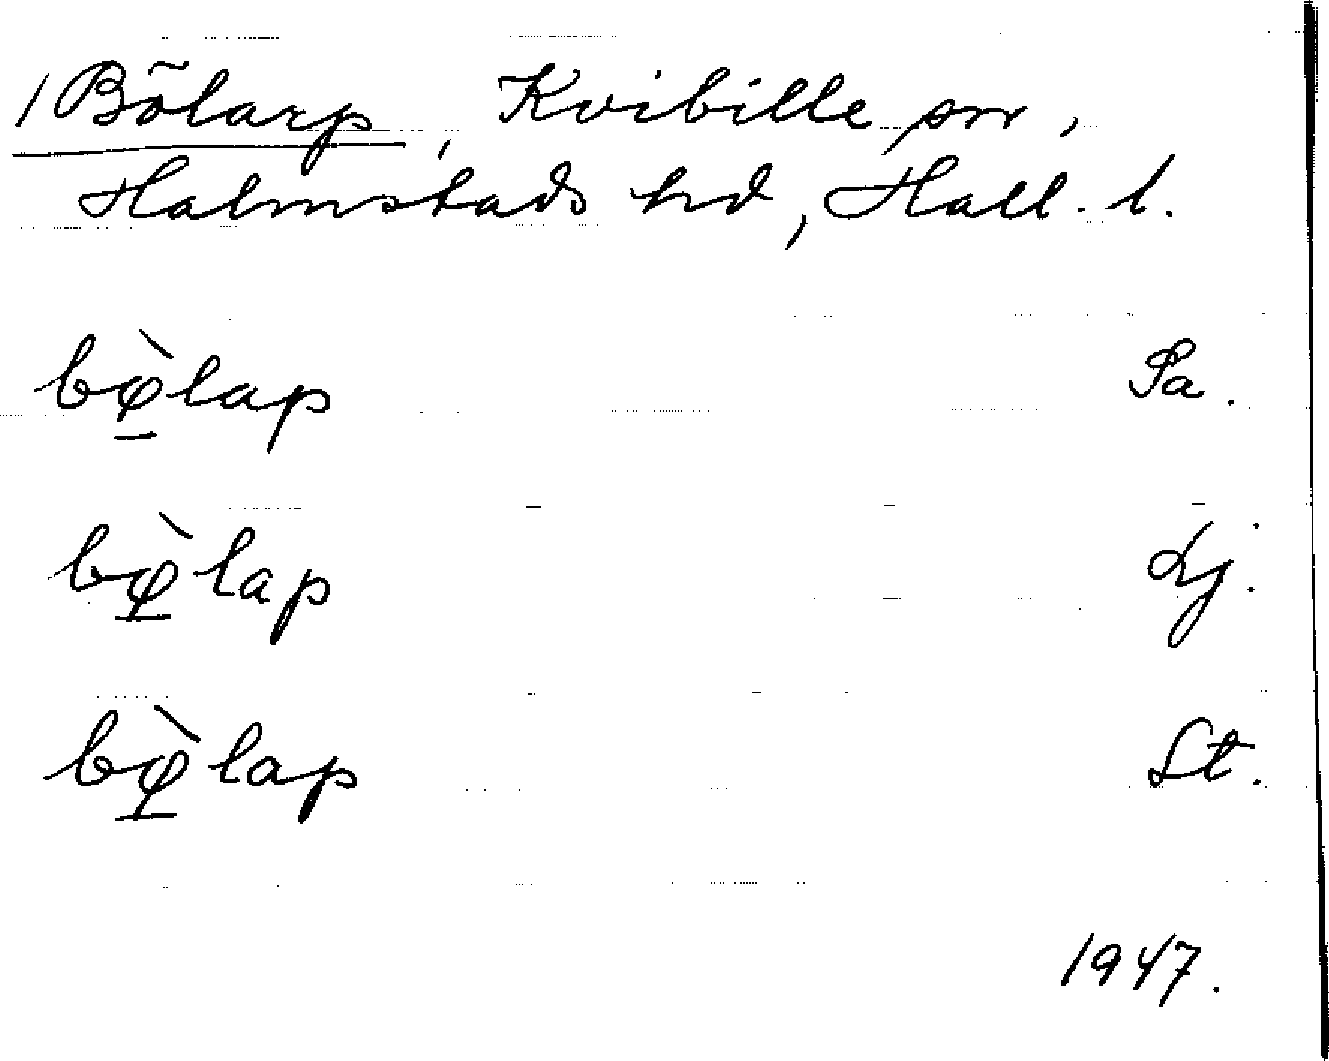 1 Bölarp, Kvibille sn,
Halmstads hd, Hall. l.
bφ̱̀lap Pa.
bφ̱̀lap Lj.
bφ̱̀lap St.
1947.